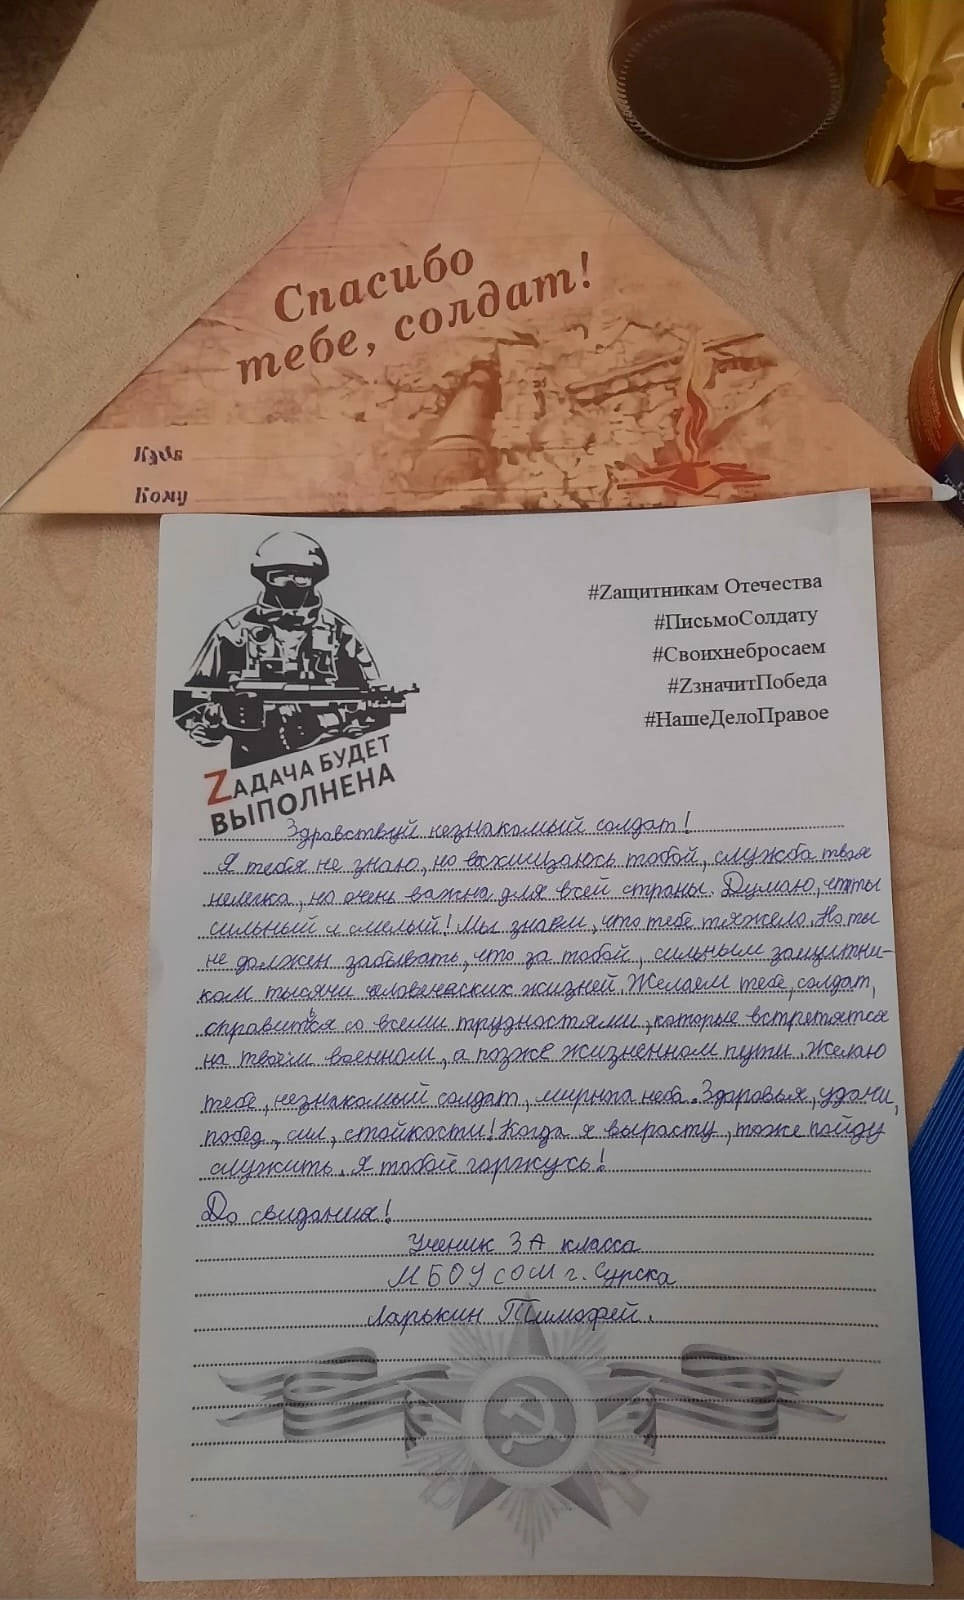 Спасибо
тебе, солдат!
Куда
Кому
#Zащитникам Отечества
#ПисьмоСолдату
#Своихнебросаем
#ZзначитПобеда
#НашеДелоПравое
ZАДАЧА БУДЕТ
ВЫПОЛНЕНА
Здравствуй незнакомый солдат!
Я тебя не знаю, но восхищаюсь тобой, служба твоя
нелегка, но очень важна для всей страны. Думаю, что ты
сильный и смелый! Мы знаем, что тебе тяжело. Но ты
не должен забывать, что за тобой, сильным защитни-
ком тысячи человеческих жизней. Желаем тебе, солдат,
справиться со всеми трудностями, которые встретятся
на твоём военном, а позже жизненном пути. Желаю
тебе, незнакомый солдат, мирного неба. Здоровья, удачи,
побед, сил, стойкости! Когда я вырасту, тоже пойду
служить. Я тобой горжусь!
До свидания!
Ученик 3А класса
МБОУ СОШ г. Сурска
Ларькин Тимофей.